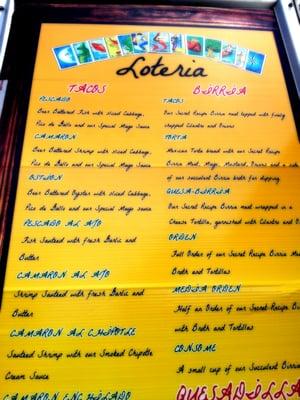 Loteria
TACOS
PESCADO
Beer Battered Fish with sliced Cabbage,
Pico de Gallo and our Special Mayo Sauce
CAMARON
Beer Battered Shrimp with sliced Cabbage,
Pico de Gallo and our Special Mayo Sauce
OSTION
Beer Battered Oyster with sliced Cabbage,
Pico de Gallo, and our Special Mayo sauce
PESCADO AL AJO
Fish Sauteed with fresh Garlic and
Butter
CAMARON AL AJO
Shrimp Sauteed with fresh Garlic and
Butter
CAMARON AL CHIPOTLE
Sauteed Shrimp with our Smoked Chipotle
Cream Sauce
CAMARON ENCHILADO
BIRRIA
TACOS
Our Secret Recipe Birria Meat topped with freshly
chopped Cilantro and Onions
TORTA
Mexican Torta bread with our Secret Recipe
Birria Meat, Mayo, Mustard, Onions and a side
of our succulent Birria broth for dipping
QUESA-BIRRIA
Our Secret Recipe Birria Meat wrapped in a
Cheesy Tortilla, garnished with Cilantro and
ORDEN
Full Order of our Secret-Recipe Birria
Broth and Tortillas
MEDIA ORDEN
Half an Order of our Secret-Recipe
with Broth and Tortillas
CONSOME
A small cup of our Succulent Birria
QUESADILLA